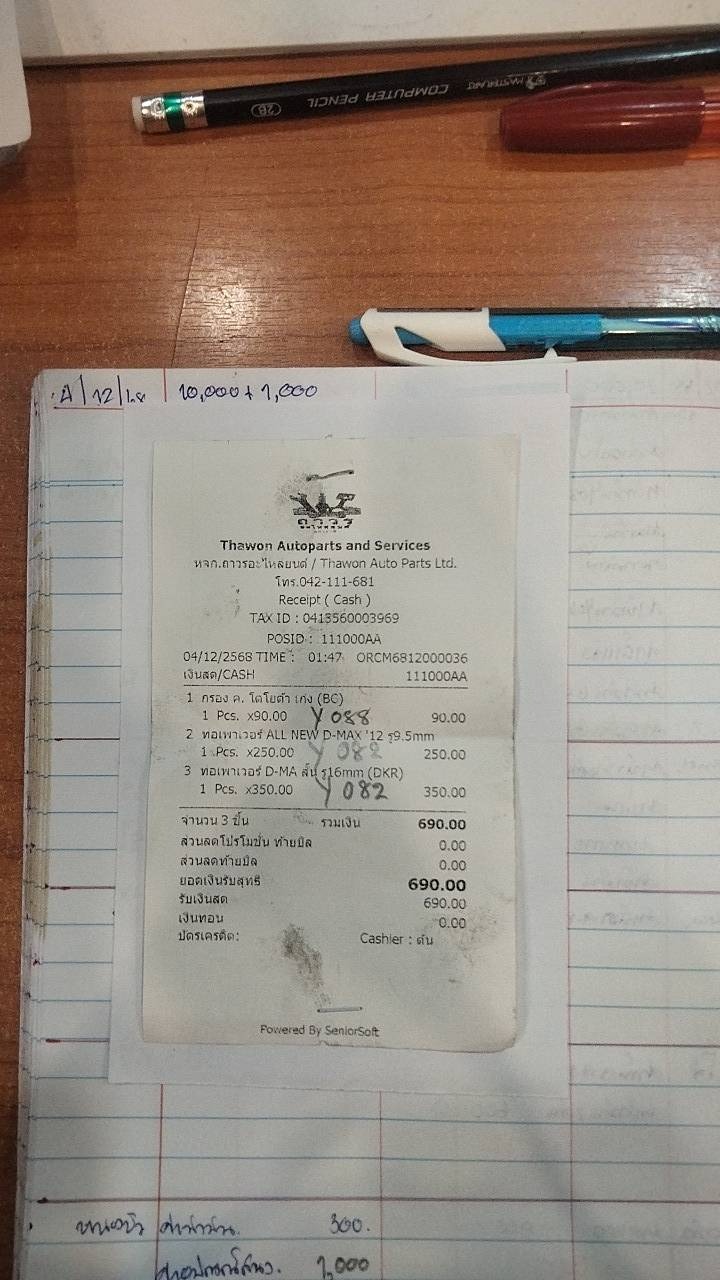 MASTERART COMPUTER PENCIL 2B
4/12/68 10,000 + 1,000
ถาวร
Thawon Autoparts and Services
หจก.ถาวรอะไหล่ยนต์ / Thawon Auto Parts Ltd.
โทร.042-111-681
Receipt ( Cash )
TAX ID : 0413560003969
POSID : 111000AA
04/12/2568 TIME : 01:47 ORCM6812000036
เงินสด/CASH 111000AA
1 กรอง ค. โตโยต้า เก๋ง (BC)
1 Pcs. x90.00 Y 088 90.00
2 ทอเพาเวอร์ ALL NEW D-MAX '12 รู9.5mm
1 Pcs. x250.00 Y 082 250.00
3 ทอเพาเวอร์ D-MA สั้น รู16mm (DKR)
1 Pcs. x350.00 Y 082 350.00
จำนวน 3 ชิ้น รวมเงิน 690.00
ส่วนลดโปรโมชั่น ท้ายบิล 0.00
ส่วนลดท้ายบิล 0.00
ยอดเงินรับสุทธิ 690.00
รับเงินสด 690.00
เงินทอน 0.00
บัตรเครดิต: Cashier : ต้น
Powered By SeniorSoft
300.
1,000